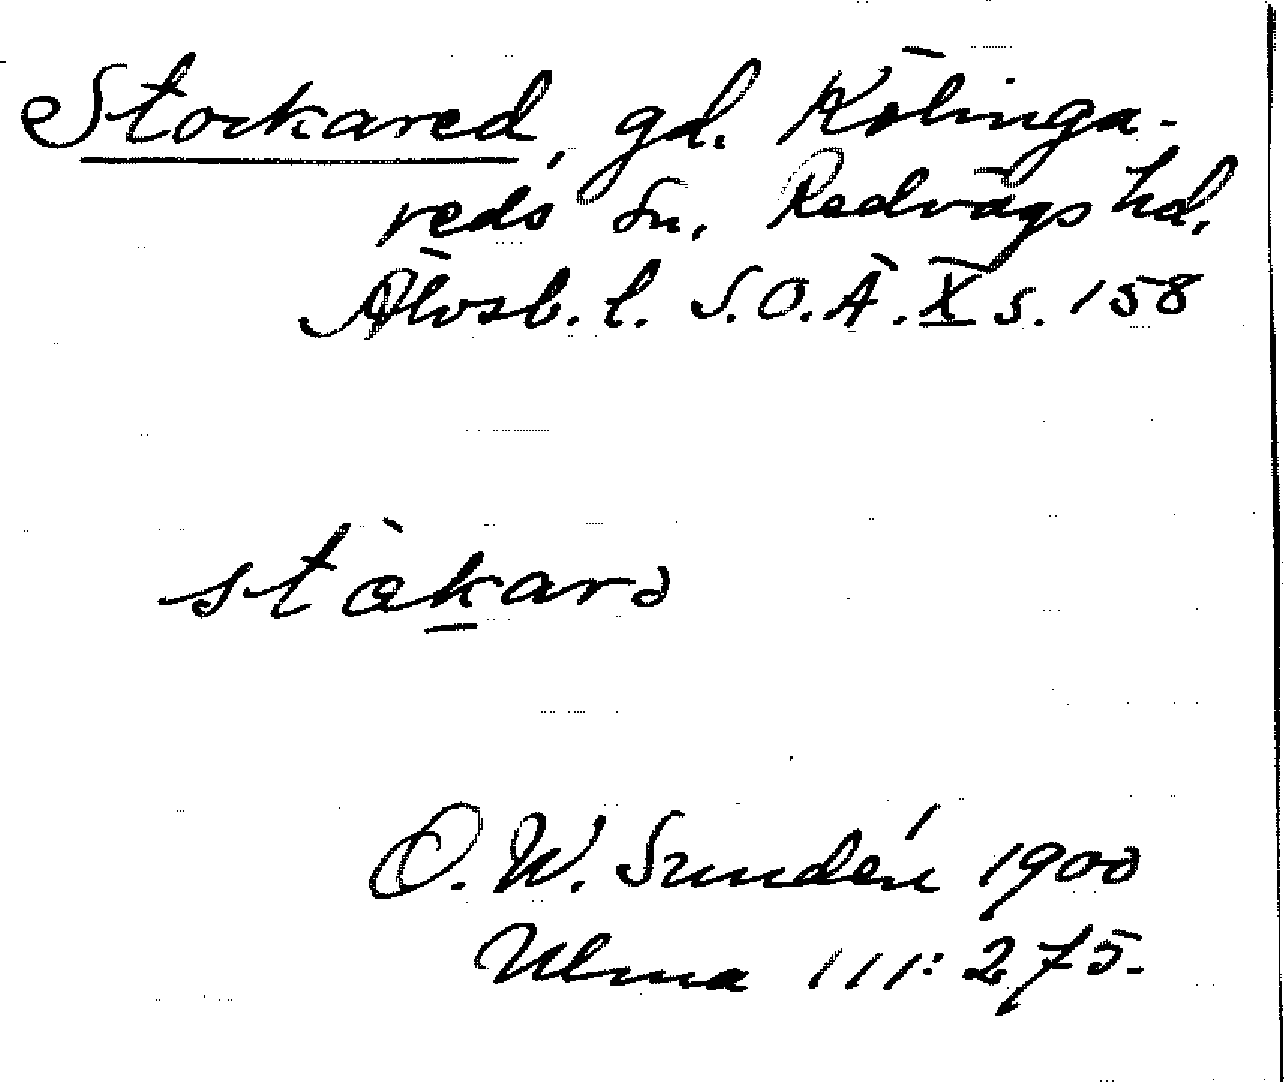 Stockared, gd. Kölinga-
reds sn. Redvägs hd.
Älvsb. l. S.O.Ä. X s. 158
stòkarə
O. W. Sundén 1900
Ulma 111:275.